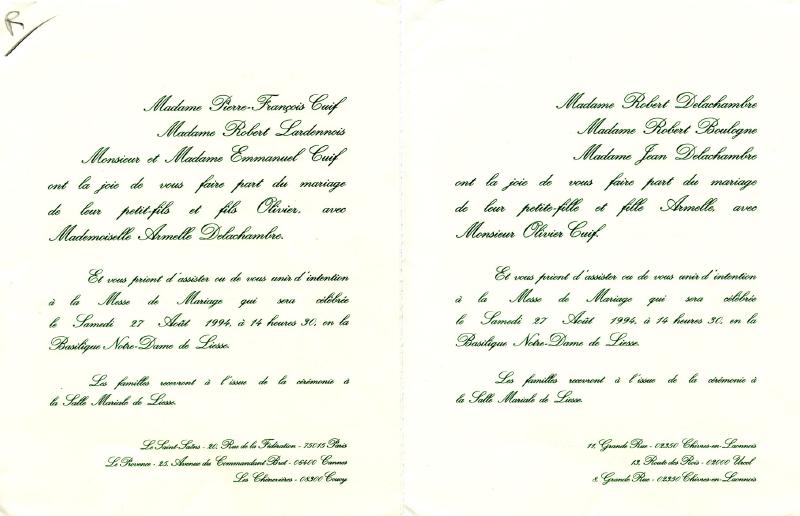 R
Madame Pierre-François Cuif
Madame Robert Lardennois
Monsieur et Madame Emmanuel Cuif
ont la joie de vous faire part du mariage
de leur petit-fils et fils Olivier, avec
Mademoiselle Armelle Delachambre.
Et vous prient d'assister ou de vous unir d'intention
à la Messe de Mariage qui sera célébrée
le Samedi 27 Août 1994, à 14 heures 30, en la
Basilique Notre-Dame de Liesse.
Les familles recevront à l'issue de la cérémonie à
la Salle Mariale de Liesse.
Le Saint-Saëns - 20, Rue de la Fédération - 75015 Paris
Le Provence - 25, Avenue du Commandant Bret - 06400 Cannes
Les Chènevières - 08300 Coucy
Madame Robert Delachambre
Madame Robert Boulogne
Madame Jean Delachambre
ont la joie de vous faire part du mariage
de leur petite-fille et fille Armelle, avec
Monsieur Olivier Cuif.
Et vous prient d'assister ou de vous unir d'intention
à la Messe de Mariage qui sera célébrée
le Samedi 27 Août 1994, à 14 heures 30, en la
Basilique Notre-Dame de Liesse.
Les familles recevront à l'issue de la cérémonie à
la Salle Mariale de Liesse.
11, Grande Rue - 02350 Chivres-en-Laonnois
13, Route des Rois - 02000 Urcel
8, Grande Rue - 02350 Chivres-en-Laonnois